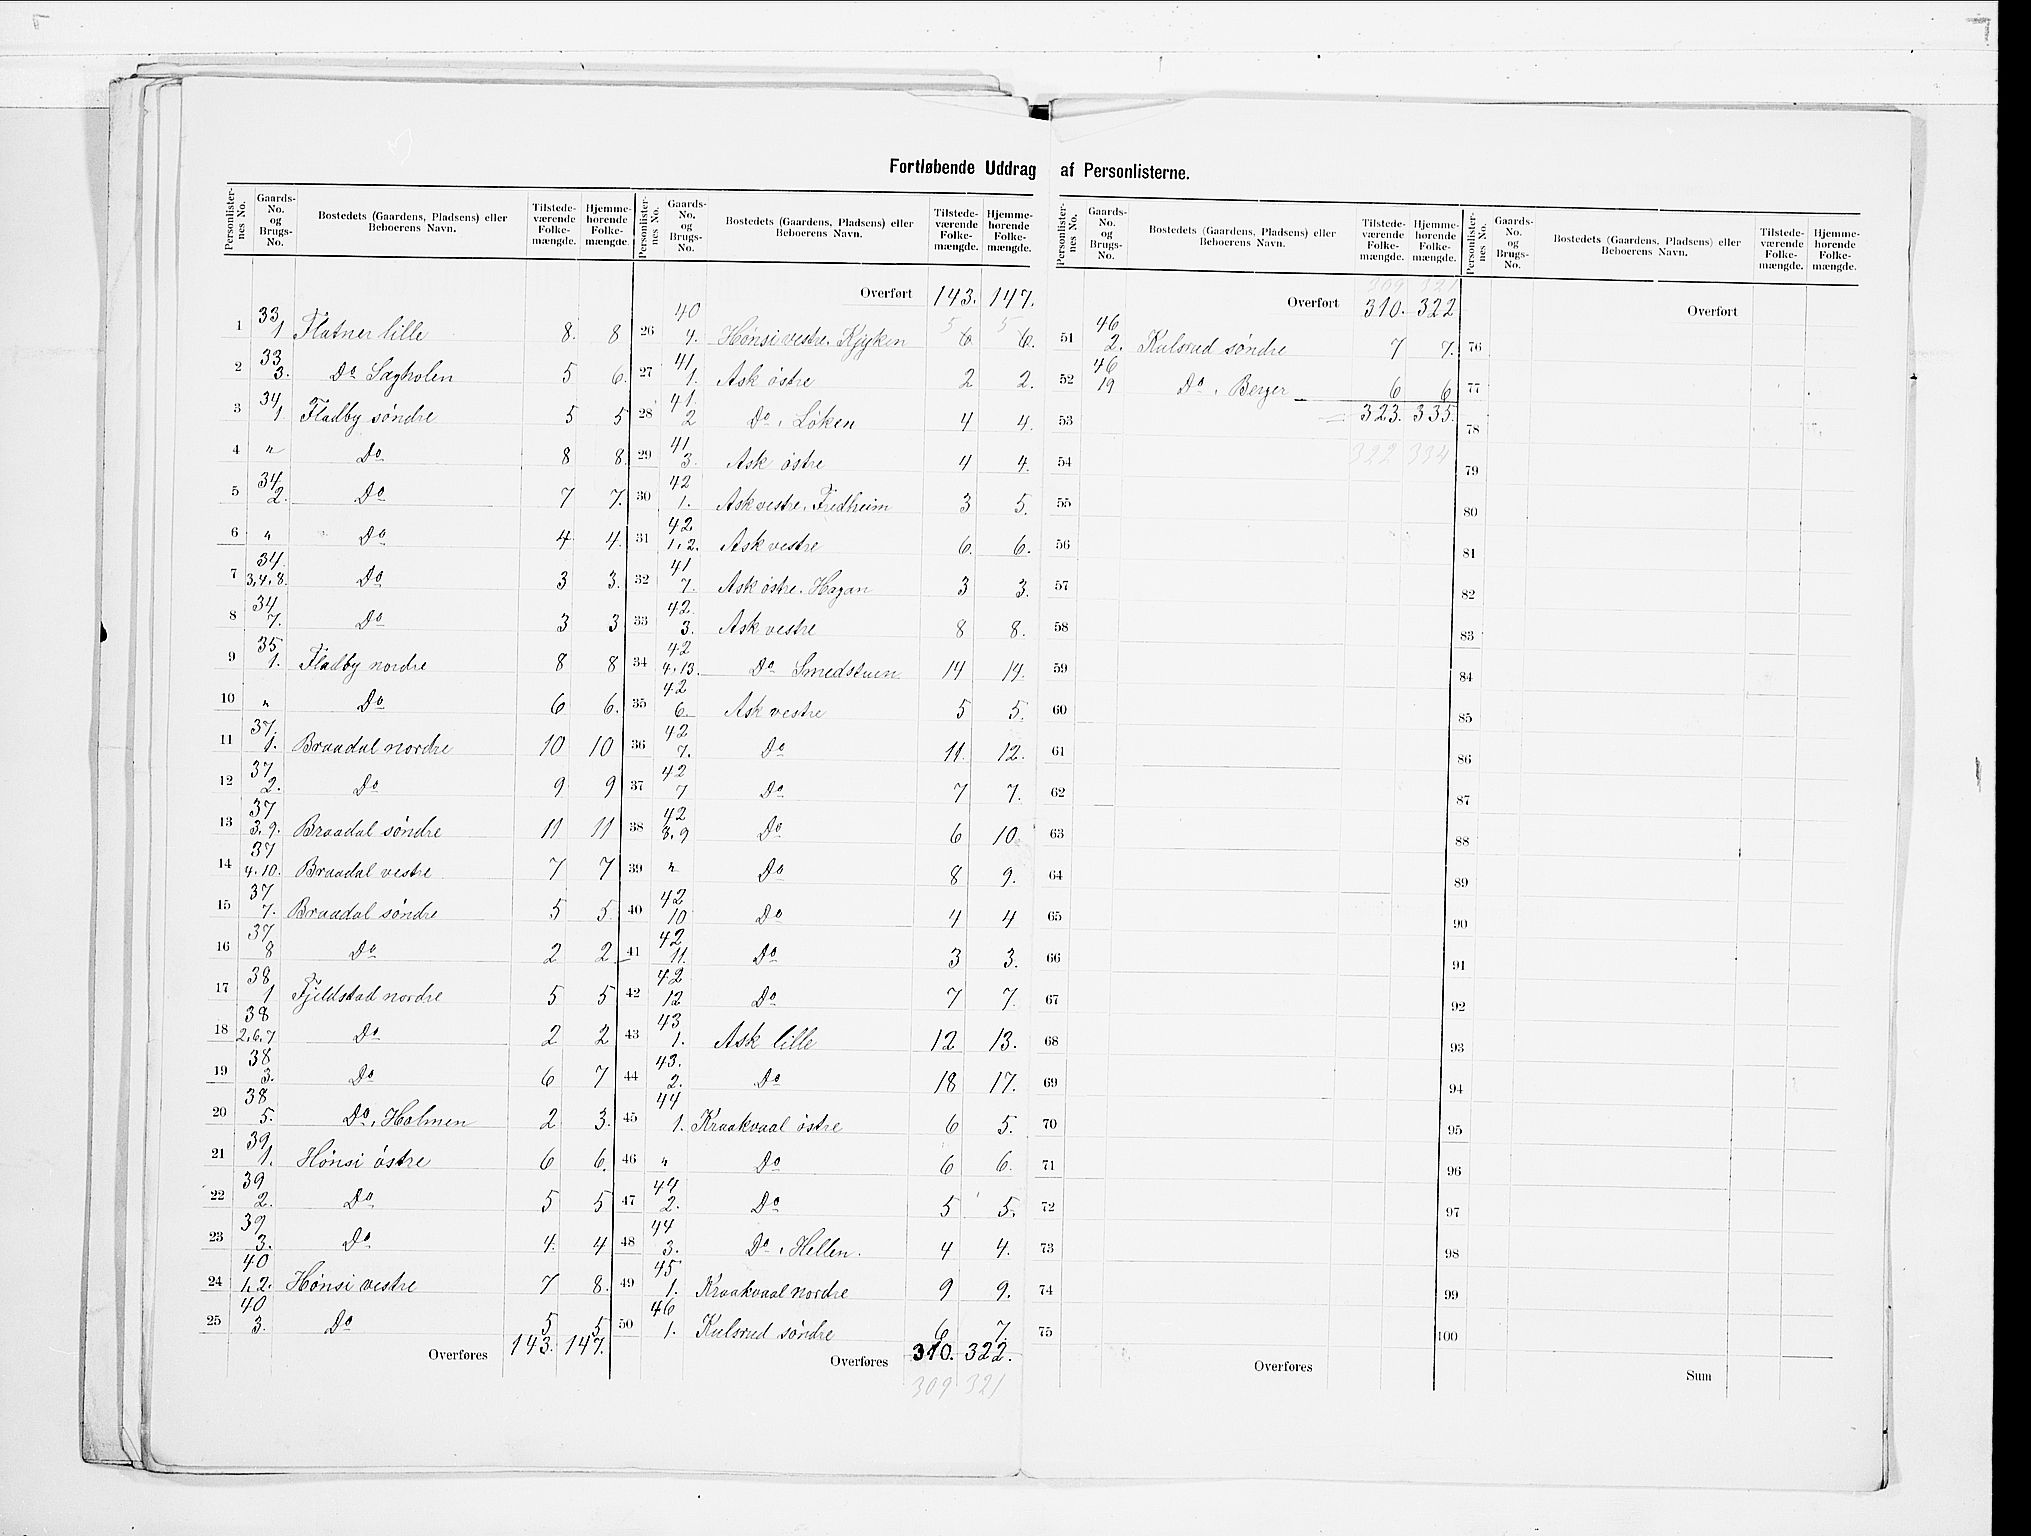 Fortløbende Uddrag af Personlisterne.
Personlisternes No. | Gaards-No. og Brugs-No. | Bostedets (Gaardens, Pladsens) eller Beboerens Navn. | Tilstedeværende Folkemængde. | Hjemmehørende Folkemængde.
1 | 33 1. | Flatner lille | 8. | 8
2 | 33 3. | Do Sagholen | 5 | 6.
3 | 34 1. | Fladby søndre | 5 | 5
4 | " | Do | 8 | 8.
5 | 34 2. | Do | 7 | 7.
6 | " | Do | 4 | 4.
7 | 34 3,4,8. | Do | 3 | 3.
8 | 34 7. | Do | 3 | 3
9 | 35 1. | Fladby nordre | 8 | 8
10 | " | Do | 6 | 6.
11 | 37. 1. | Braadal nordre | 10 | 10
12 | 37 2. | Do | 9 | 9
13 | 37 3,9. | Braadal søndre | 11 | 11
14 | 37 4,10. | Braadal vestre | 7 | 7
15 | 37 7. | Braadal søndre | 5 | 5.
16 | 37 8 | Do | 2 | 2.
17 | 38 1 | Fjeldstad nordre | 5 | 5
18 | 38 2,6,7 | Do | 2 | 2
19 | 38 3. | Do | 6 | 7
20 | 38 5. | Do, Holmen | 2 | 3.
21 | 39 1. | Hønsi østre | 6 | 6.
22 | 39 2. | Do | 5 | 5
23 | 39 3. | Do | 4. | 4
24 | 40 1,2. | Hønsi vestre | 7 | 8.
25 | 40 3. | Do | 5 | 5
Overføres 143. 147.
Personlisternes No. | Gaards-No. og Brugs-No. | Bostedets (Gaardens, Pladsens) eller Beboerens Navn. | Tilstedeværende Folkemængde. | Hjemmehørende Folkemængde.
Overført 143. 147.
5 5
26 | 40 4. | Hønsi vestre, Kjøken | 6 | 6.
27 | 41 1. | Ask østre | 2 | 2.
28 | 41. 2 | Do, Løken | 4 | 4.
29 | 41 3. | Ask østre | 4 | 4.
30 | 42 1. | Ask vestre, Fredheim | 3 | 5.
31 | 42 1,2. | Ask vestre | 6. | 6.
32 | 41 7. | Ask østre, Hagan | 3 | 3.
33 | 42 3. | Ask vestre | 8 | 8.
34 | 42 4,13. | Do Smedstuen | 14 | 14.
35 | 42 6. | Ask vestre | 5 | 5.
36 | 42 7. | Do | 11. | 12.
37 | 42 7 | Do | 7 | 7.
38 | 42 3,9 | Do | 6 | 10.
39 | " | Do | 8 | 9.
40 | 42 10 | Do | 4 | 4
41 | 42 11. | Do | 3 | 3.
42 | 42 12 | Do | 7 | 7.
43 | 43 1. | Ask lille | 12 | 13.
44 | 43. 2. | Do | 18 | 17.
45 | 44 1. | Kraakvaal østre | 6 | 5.
46 | " | Do | 6 | 6.
47 | 44 2. | Do | 5 | 5.
48 | 44 3. | Do, Hellen. | 4 | 4.
49 | 45 1. | Kraakvaal nordre | 9 | 9.
50 | 46 1. | Kulsrud søndre | 6 | 7.
Overføres 310. 322.
309 321
Personlisternes No. | Gaards-No. og Brugs-No. | Bostedets (Gaardens, Pladsens) eller Beboerens Navn. | Tilstedeværende Folkemængde. | Hjemmehørende Folkemængde.
309 321
Overført 310. 322
51 | 46 2. | Kulsrud søndre | 7 | 7.
52 | 46 19 | Do, Berger | 6 | 6
53 | 323. 335.
54 | 322 334
55
56
57
58
59
60
61
62
63
64
65
66
67
68
69
70
71
72
73
74
75
Overføres
Personlisternes No. | Gaards-No. og Brugs-No. | Bostedets (Gaardens, Pladsens) eller Beboerens Navn. | Tilstedeværende Folkemængde. | Hjemmehørende Folkemængde.
Overført
76
77
78
79
80
81
82
83
84
85
86
87
88
89
90
91
92
93
94
95
96
97
98
99
100
Sum